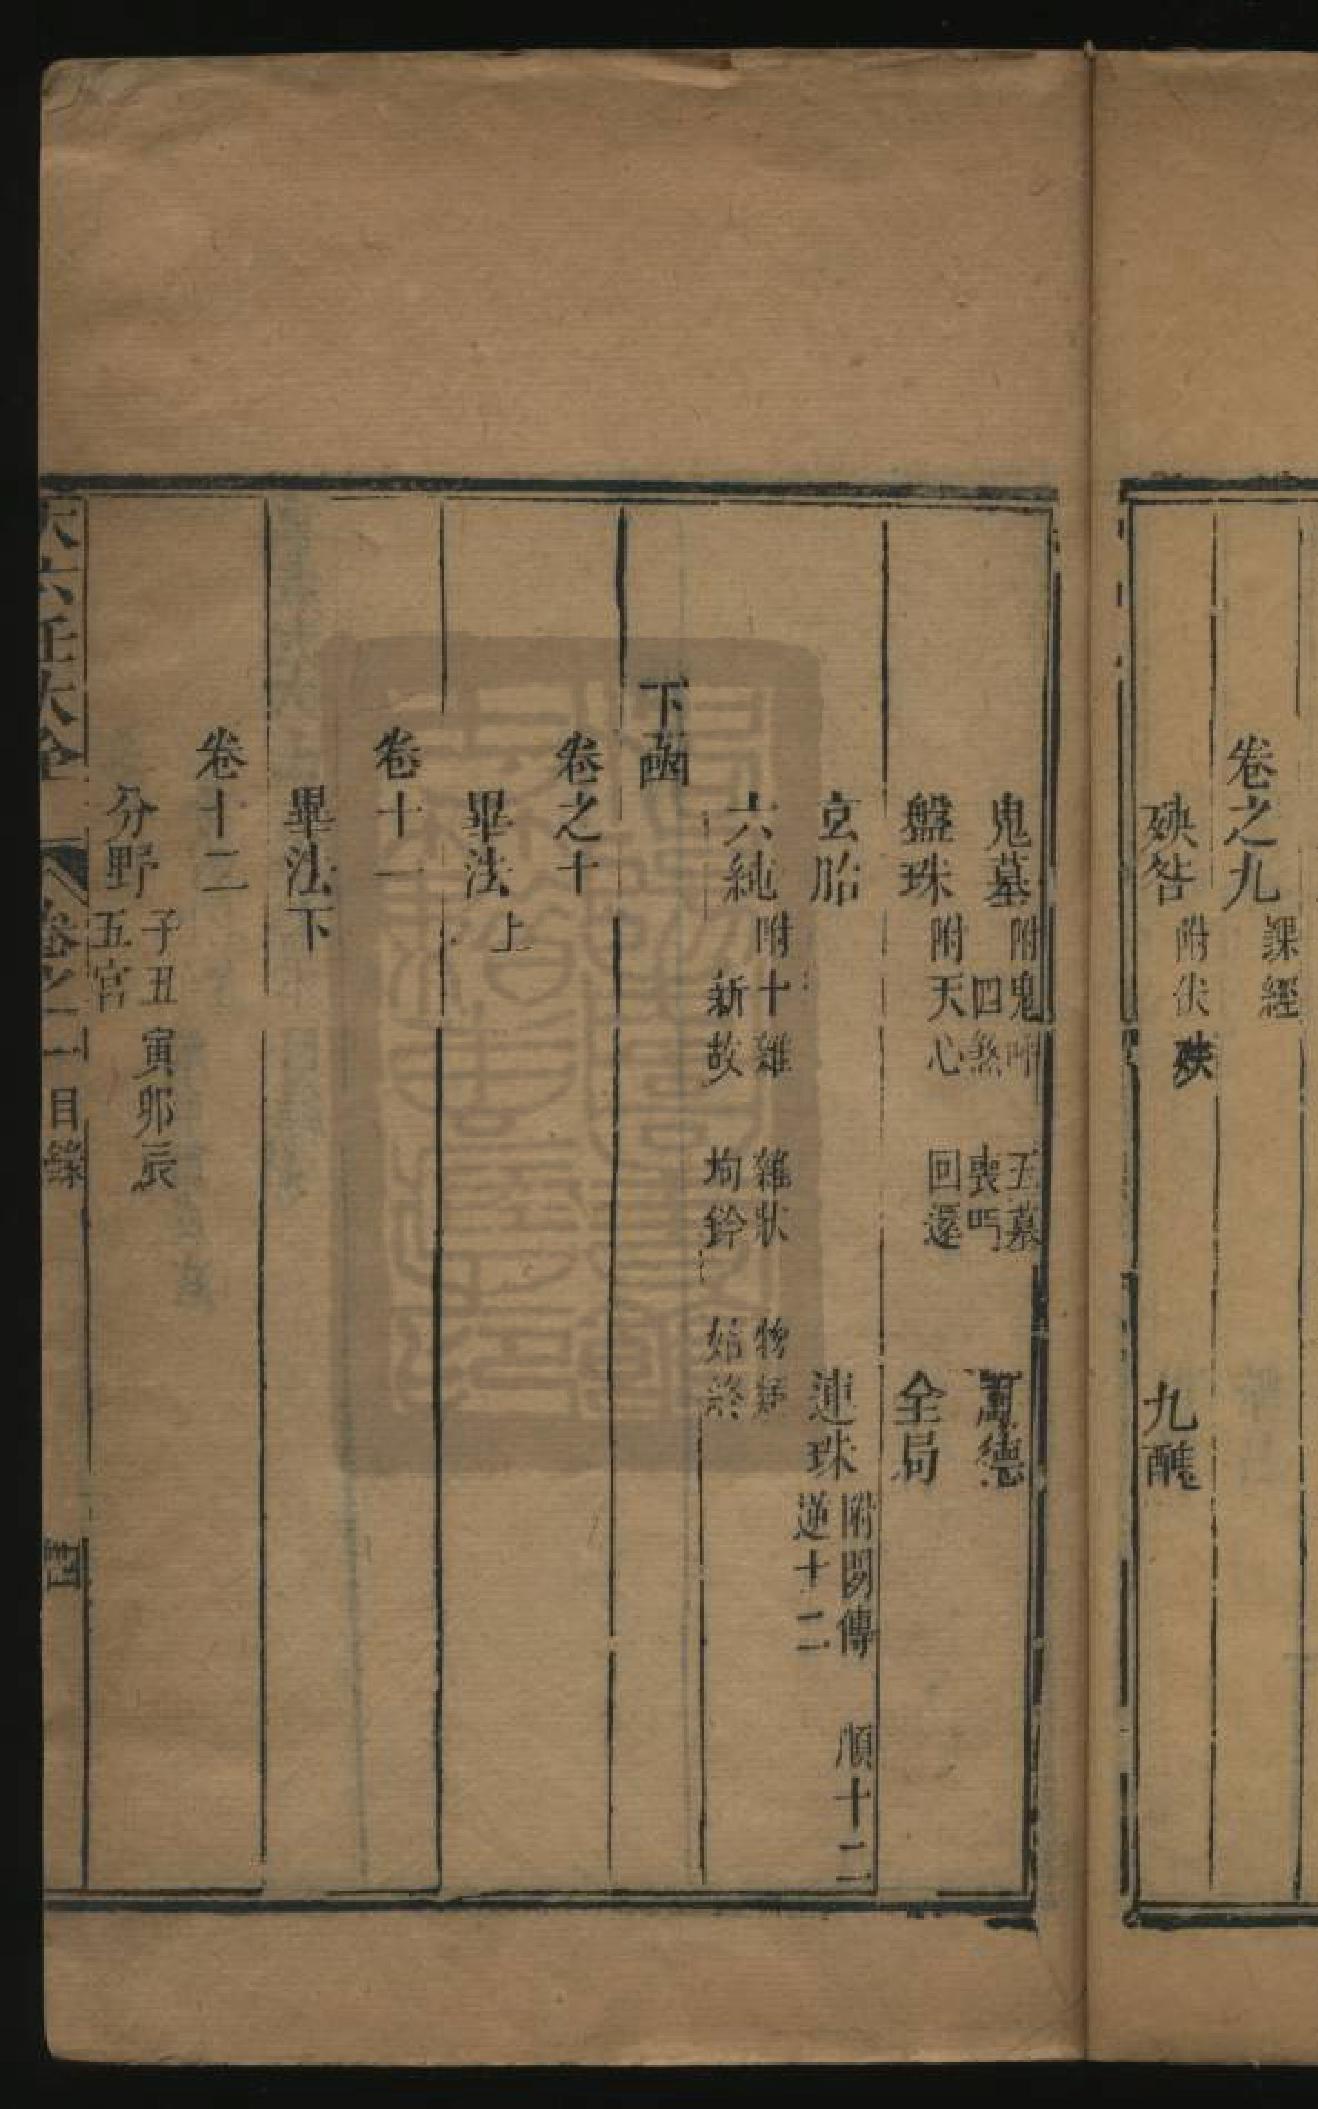 卷之九 課經
殃咎 附伏殃 九醜
鬼墓 附鬼呼 五墓 四煞 喪弔 萬德
盤珠 附天心 回還 全局
玄胎 連珠 附間傳 順十二 逆十二
六純 附十雜 雜狀 物類 新故 始終
下函
卷之十
畢法上
卷十一
畢法下
卷十二
分野 子丑 寅卯辰 五宮
大六壬大全 卷之一 目錄